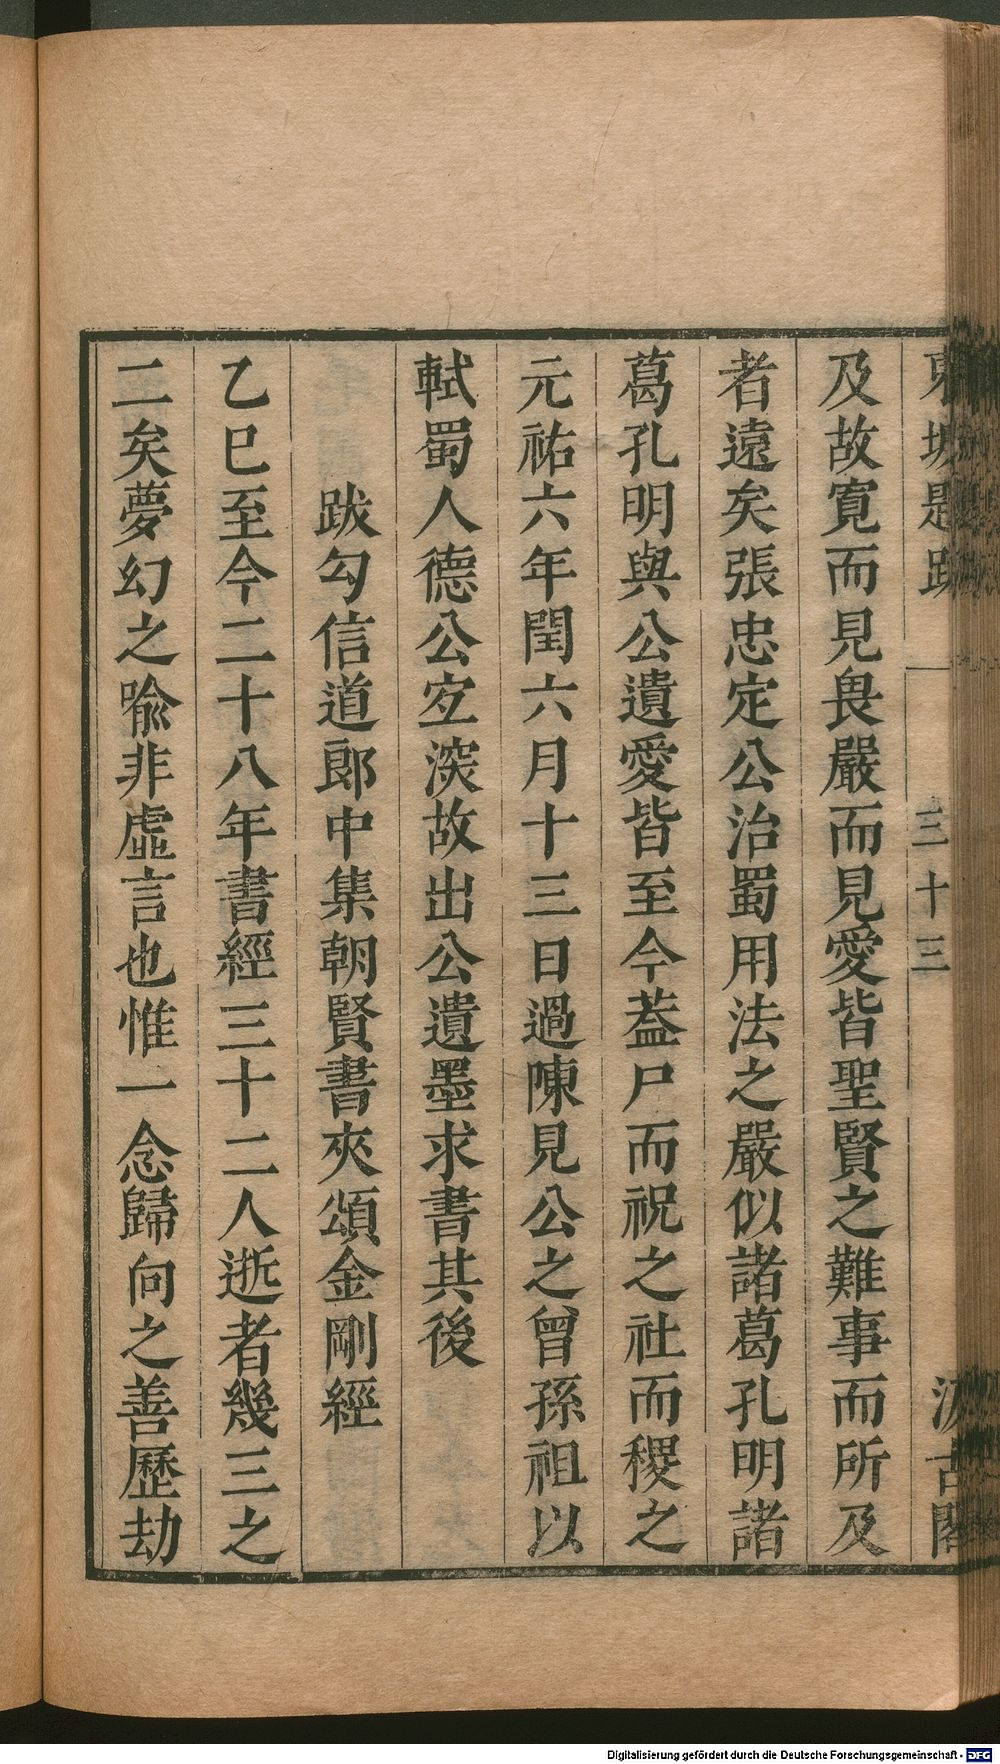 東坡題跋 三十三 汲古閣
及故寬而見畏嚴而見愛皆聖賢之難事而所及
者遠矣張忠定公治蜀用法之嚴似諸葛孔明諸
葛孔明與公遺愛皆至今蓋尸而祝之社而稷之
元祐六年閏六月十三日過陳見公之曾孫祖以
軾蜀人德公宐深故出公遺墨求書其後
跋勾信道郎中集朝賢書夾頌金剛經
乙巳至今二十八年書經三十二人逝者幾三之
二矣夢幻之喻非虛言也惟一念歸向之善歷劫
Digitalisierung gefördert durch die Deutsche Forschungsgemeinschaft - DFG